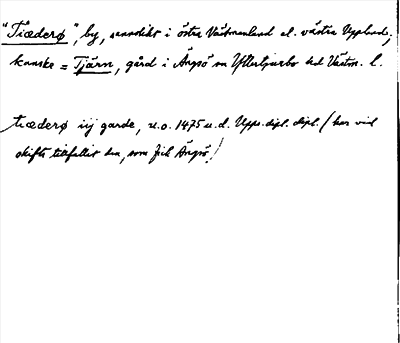 "Tiæderø", by, sannolikt i östra Västmanland el. västra Uppland;
kanske = Tjärn, gård i Ängsö sn Yttertjurbo hd Västm. l.
tiæderø iij garde, u.o. 1475 u.d. Upps. dipl. dipl. (har vid
skifte tillfallit den, som fick Ängsö!)